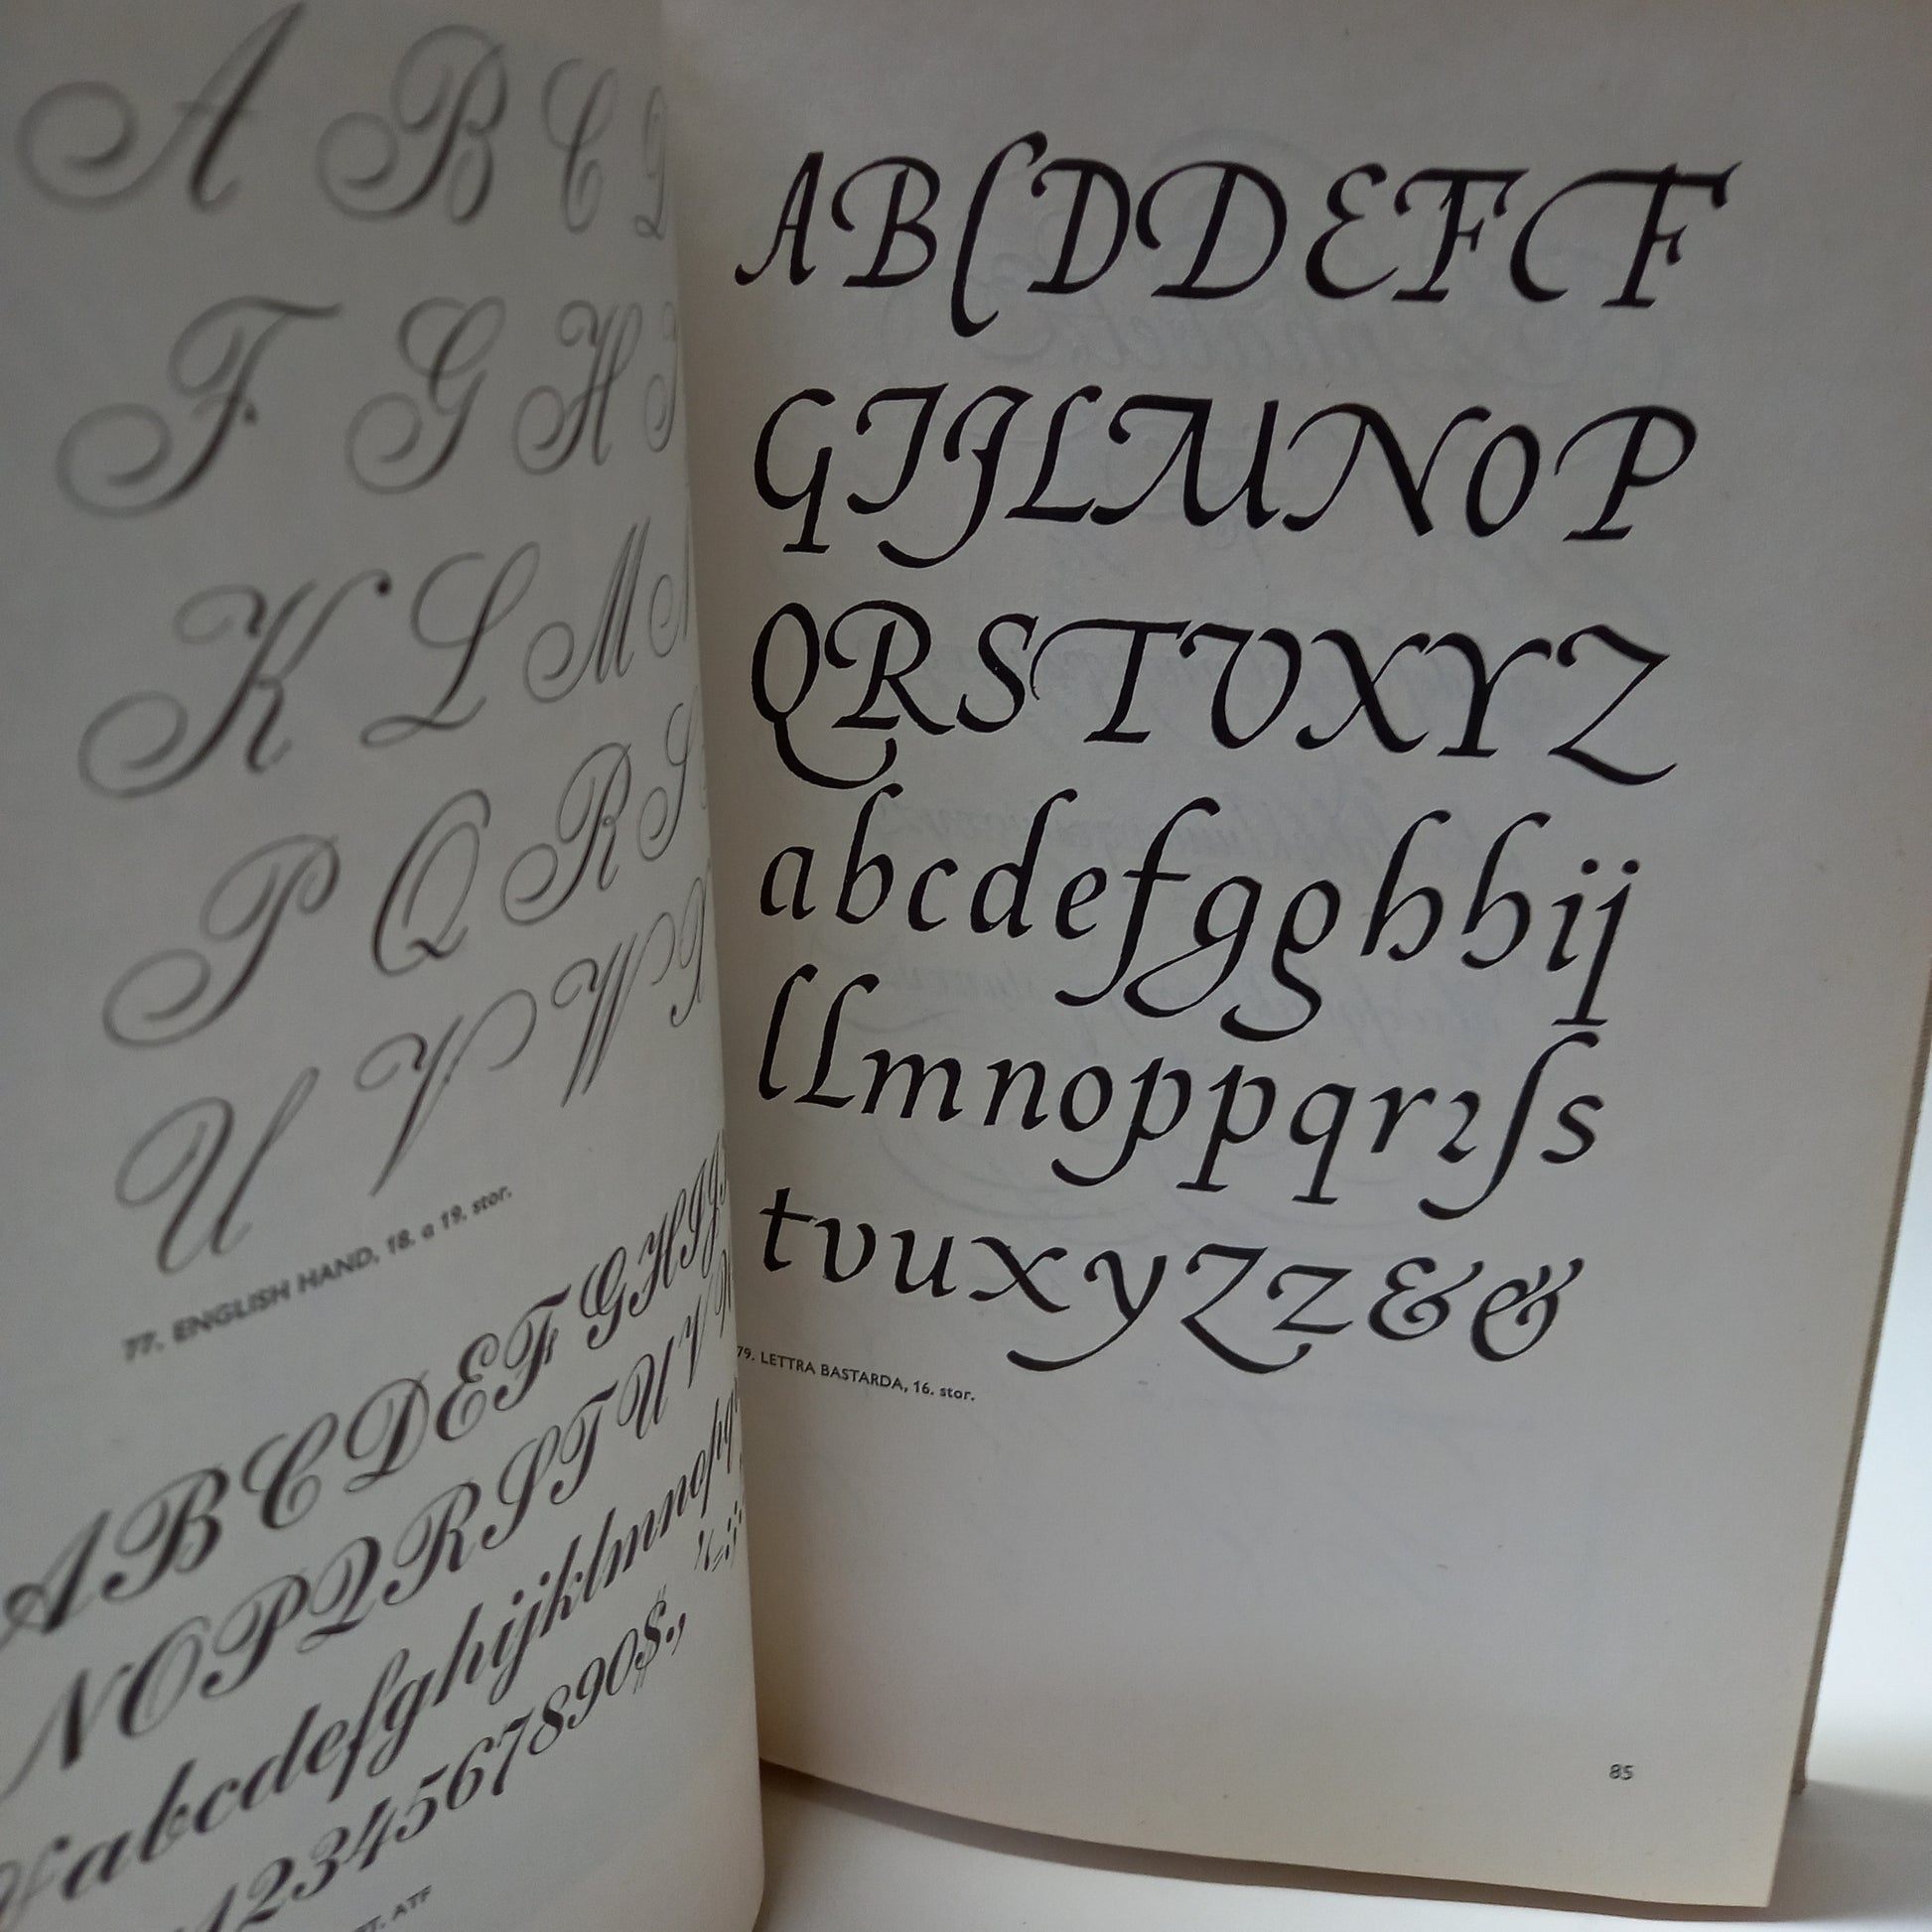 A B C D
F G H
K L M
P Q R S
U V W X
77. ENGLISH HAND, 18. a 19. stor.
A B C D E F G H I J
N O P Q R S T U V
a b c d e f g h i j k l m n o p
1 2 3 4 5 6 7 8 9 0 $ . ,
ATF
A B C D D E F F
G I J L M N O P
Q R S T V X Y Z
a b c d e f g g h h i j
l l m n o p p q r ꝛ ſ s
t v u x y Z z & &
79. LETTRA BASTARDA, 16. stor.
85